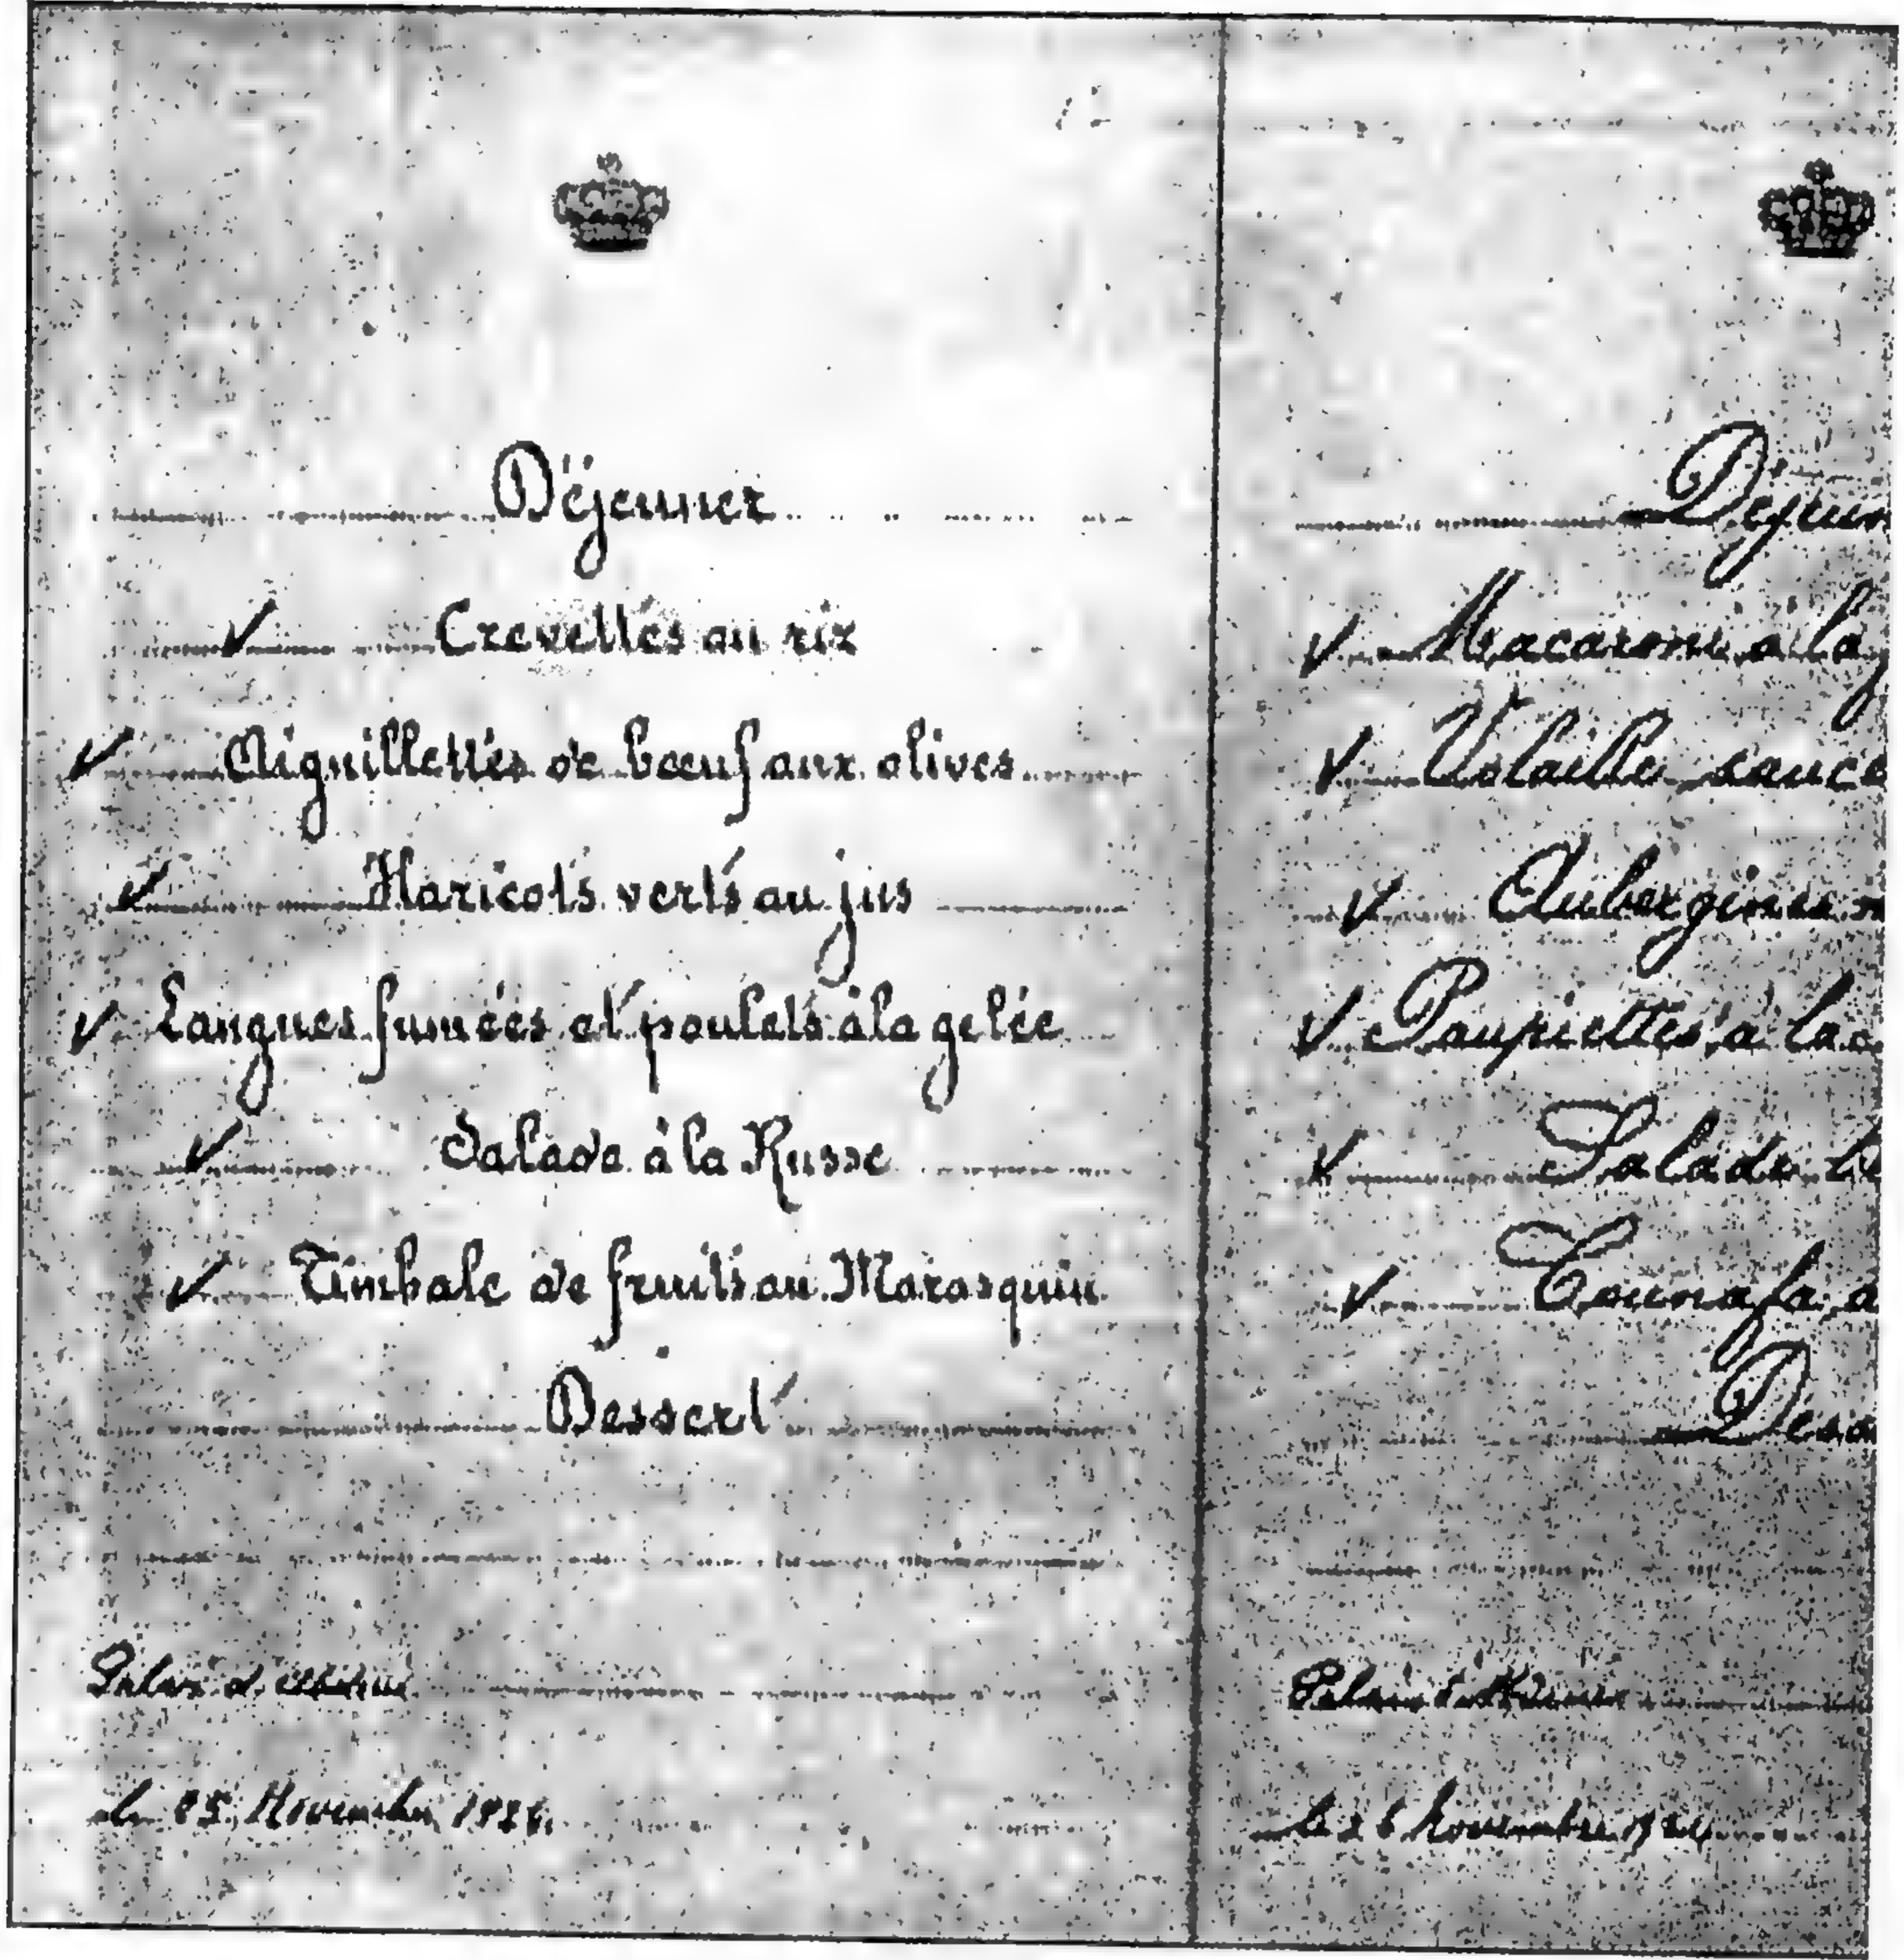 Déjeuner
Crevettes au riz
Aiguillettes de bœuf aux olives
Haricots verts au jus
Langues fumées et poulets à la gelée
Salade à la Russe
Timbale de fruits au Marasquin
Dessert
le 25 Novembre
Macaroni à la
Volaille sauce
Aubergines
Paupiettes à la
Salade
Counafa
le 26 Novembre